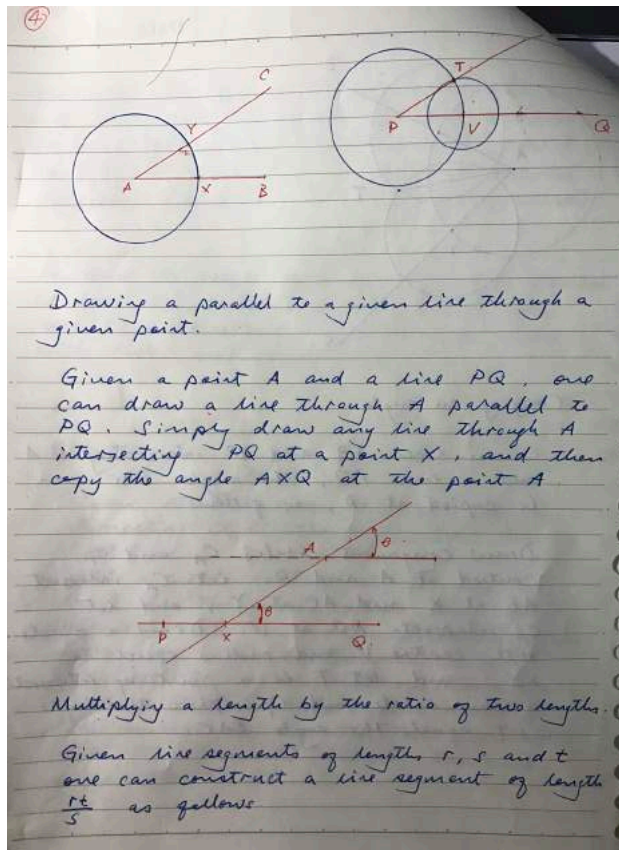 4
C
Y
A
X
B
T
P
V
Q
Drawing a parallel to a given line through a
given point.
Given a point A and a line PQ, one
can draw a line through A parallel to
PQ. Simply draw any line through A
intersecting PQ at a point X, and then
copy the angle AXQ at the point A
A
θ
θ
P
X
Q
Multiplying a length by the ratio of two lengths.
Given line segments of lengths r, s and t
one can construct a line segment of length
rt/s as follows